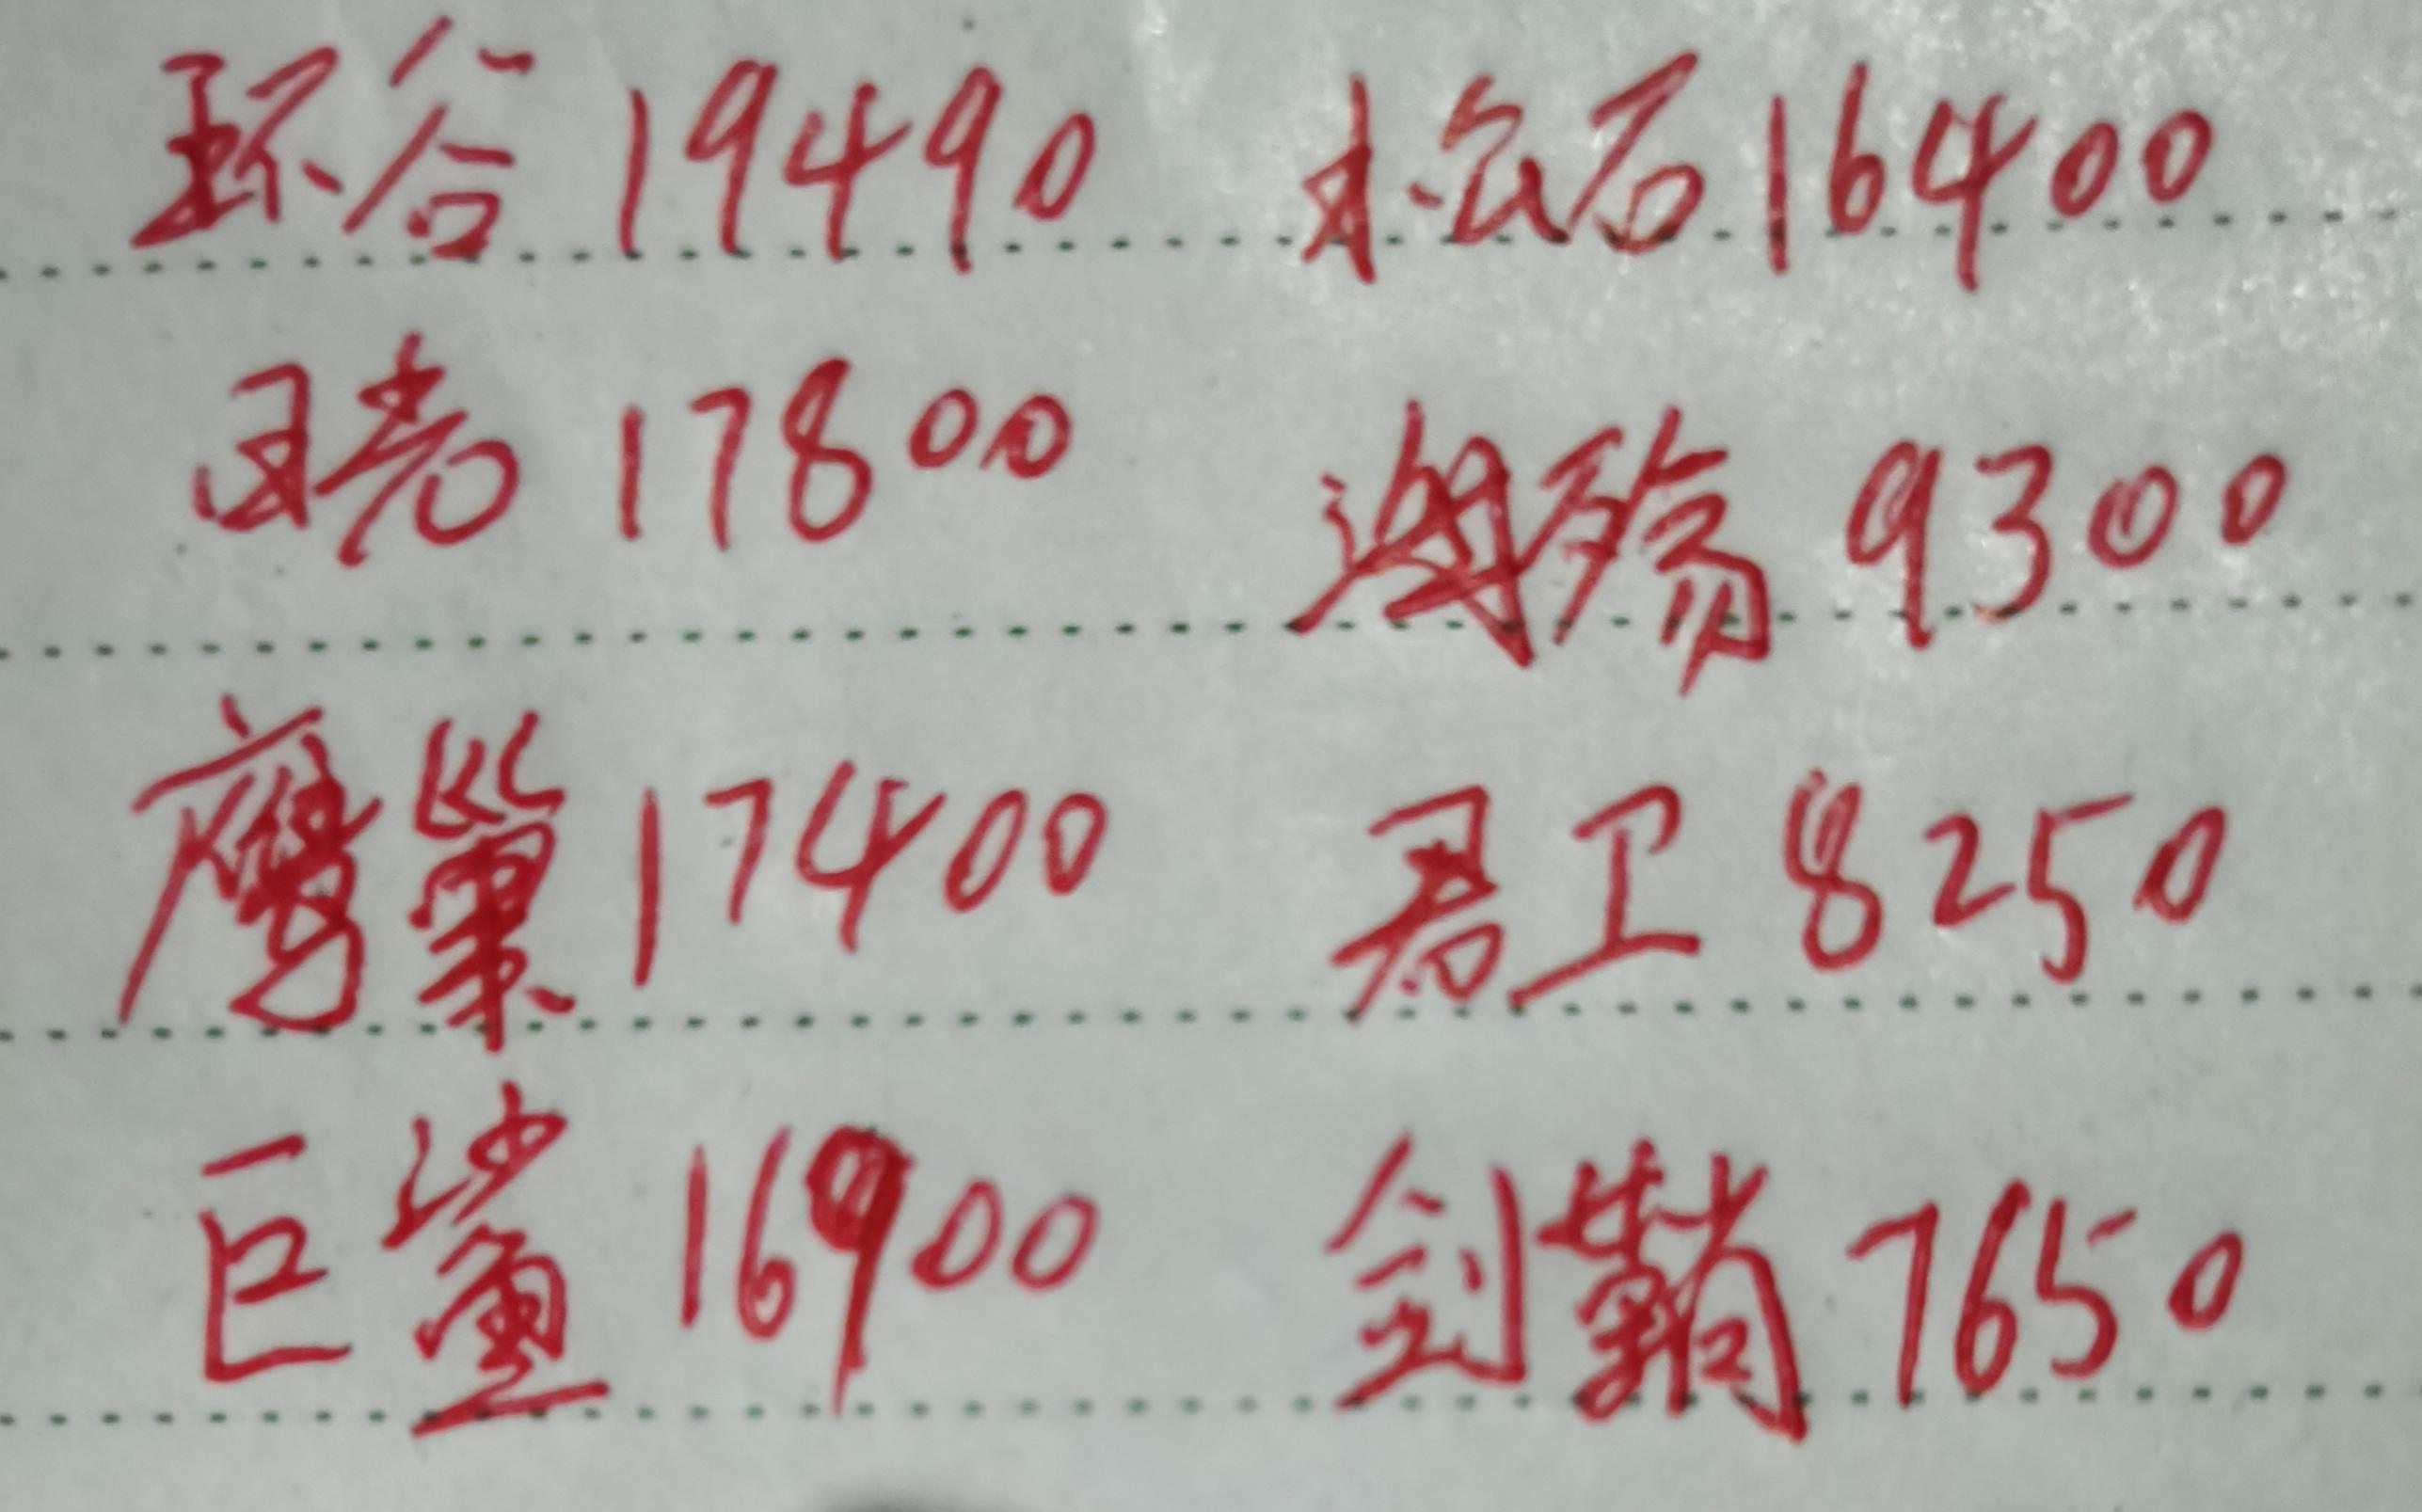 环谷 19490 松石 16400
日尧 17800
湖殇 9300
鹰巢 17400 君卫 8250
巨鲨 16900 剑鞘 7650